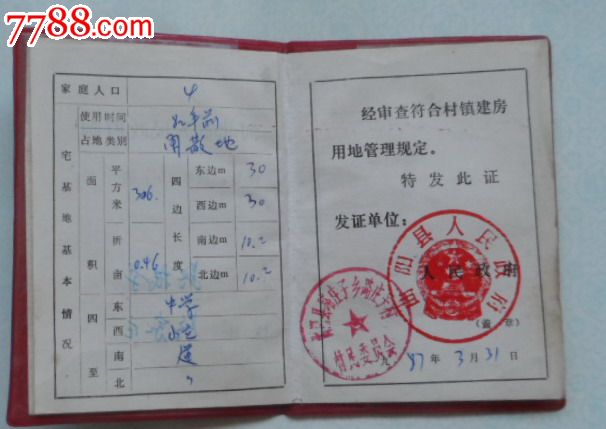 7788.com
家庭人口 4
宅基地基本情况
使用时间
占地类别
面积
平方米 306
折亩 0.46
四边长度
东边m 30
西边m 30
南边m 10.2
北边m 10.2
四至
东 中学
西
南 道
北 〃
经审查符合村镇建房
用地管理规定。
特发此证
发证单位：
阳县人民政府
人民政府
(盖章)
村民委员会
87年3月31日